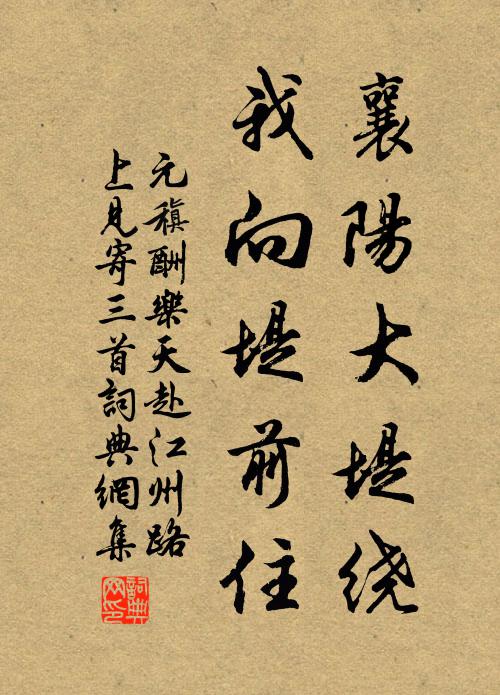 襄陽大堤绕
我向堤前住
元稹酬樂天赴江州路
上見寄三首詞典網集
詞典
网印